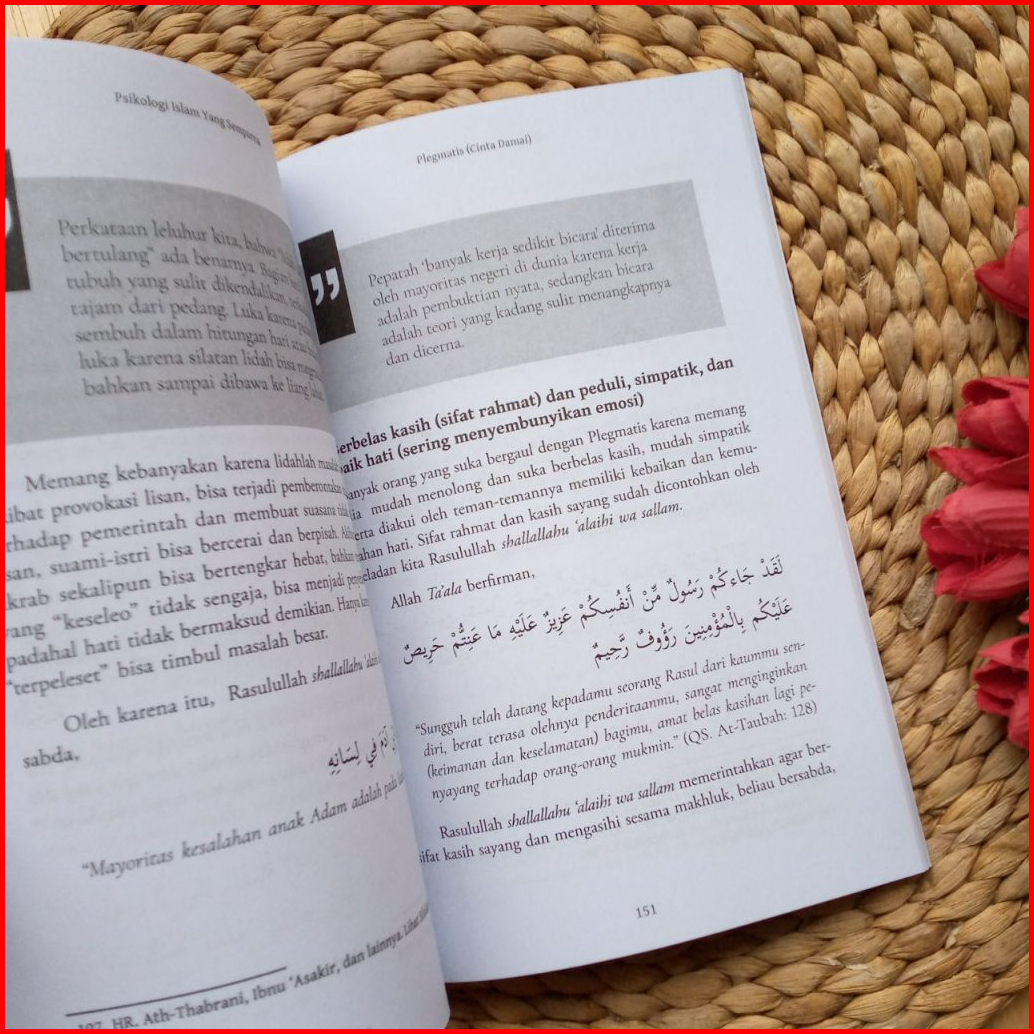 Psikologi Islam Yang Sempurna
Perkataan leluhur kita, bahwa
bertulang" ada benarnya. Bagian
tubuh yang sulit dikendalikan,
tajam dari pedang. Luka karena
sembuh dalam hitungan hari atau
luka karena silatan lidah bisa
bahkan sampai dibawa ke liang
Memang kebanyakan karena lidahlah
provokasi lisan, bisa terjadi
pemerintah dan membuat suasana
suami-istri bisa bercerai dan berpisah.
sekalipun bisa bertengkar hebat, bahkan
yang "keseleo" tidak sengaja, bisa menjadi
padahal hati tidak bermaksud demikian. Hanya
"terpeleset" bisa timbul masalah besar.
Oleh karena itu, Rasulullah shallallahu 'alaihi
sabda,
آدَمَ فِي لِسَانِهِ
"Mayoritas kesalahan anak Adam adalah pada
HR. Ath-Thabrani, Ibnu 'Asakir, dan lainnya. Lihat
Plegmatis (Cinta Damai)
"
Pepatah 'banyak kerja sedikit bicara' diterima
oleh mayoritas negeri di dunia karena kerja
adalah pembuktian nyata, sedangkan bicara
adalah teori yang kadang sulit menangkapnya
dan dicerna.
kasih (sifat rahmat) dan peduli, simpatik, dan
hati (sering menyembunyikan emosi)
orang yang suka bergaul dengan Plegmatis karena memang
mudah menolong dan suka berbelas kasih, mudah simpatik
diakui oleh teman-temannya memiliki kebaikan dan kemu-
hati. Sifat rahmat dan kasih sayang sudah dicontohkan oleh
kita Rasulullah shallallahu 'alaihi wa sallam.
Allah Ta'ala berfirman,
لَقَدْ جَاءَكُمْ رَسُولٌ مِّنْ أَنفُسِكُمْ عَزِيزٌ عَلَيْهِ مَا عَنِتُّمْ حَرِيصٌ
عَلَيْكُم بِالْمُؤْمِنِينَ رَؤُوفٌ رَّحِيمٌ
"Sungguh telah datang kepadamu seorang Rasul dari kaummu sen-
diri, berat terasa olehnya penderitaanmu, sangat menginginkan
(keimanan dan keselamatan) bagimu, amat belas kasihan lagi pe-
nyayang terhadap orang-orang mukmin." (QS. At-Taubah: 128)
Rasulullah shallallahu 'alaihi wa sallam memerintahkan agar ber-
sifat kasih sayang dan mengasihi sesama makhluk, beliau bersabda,
151